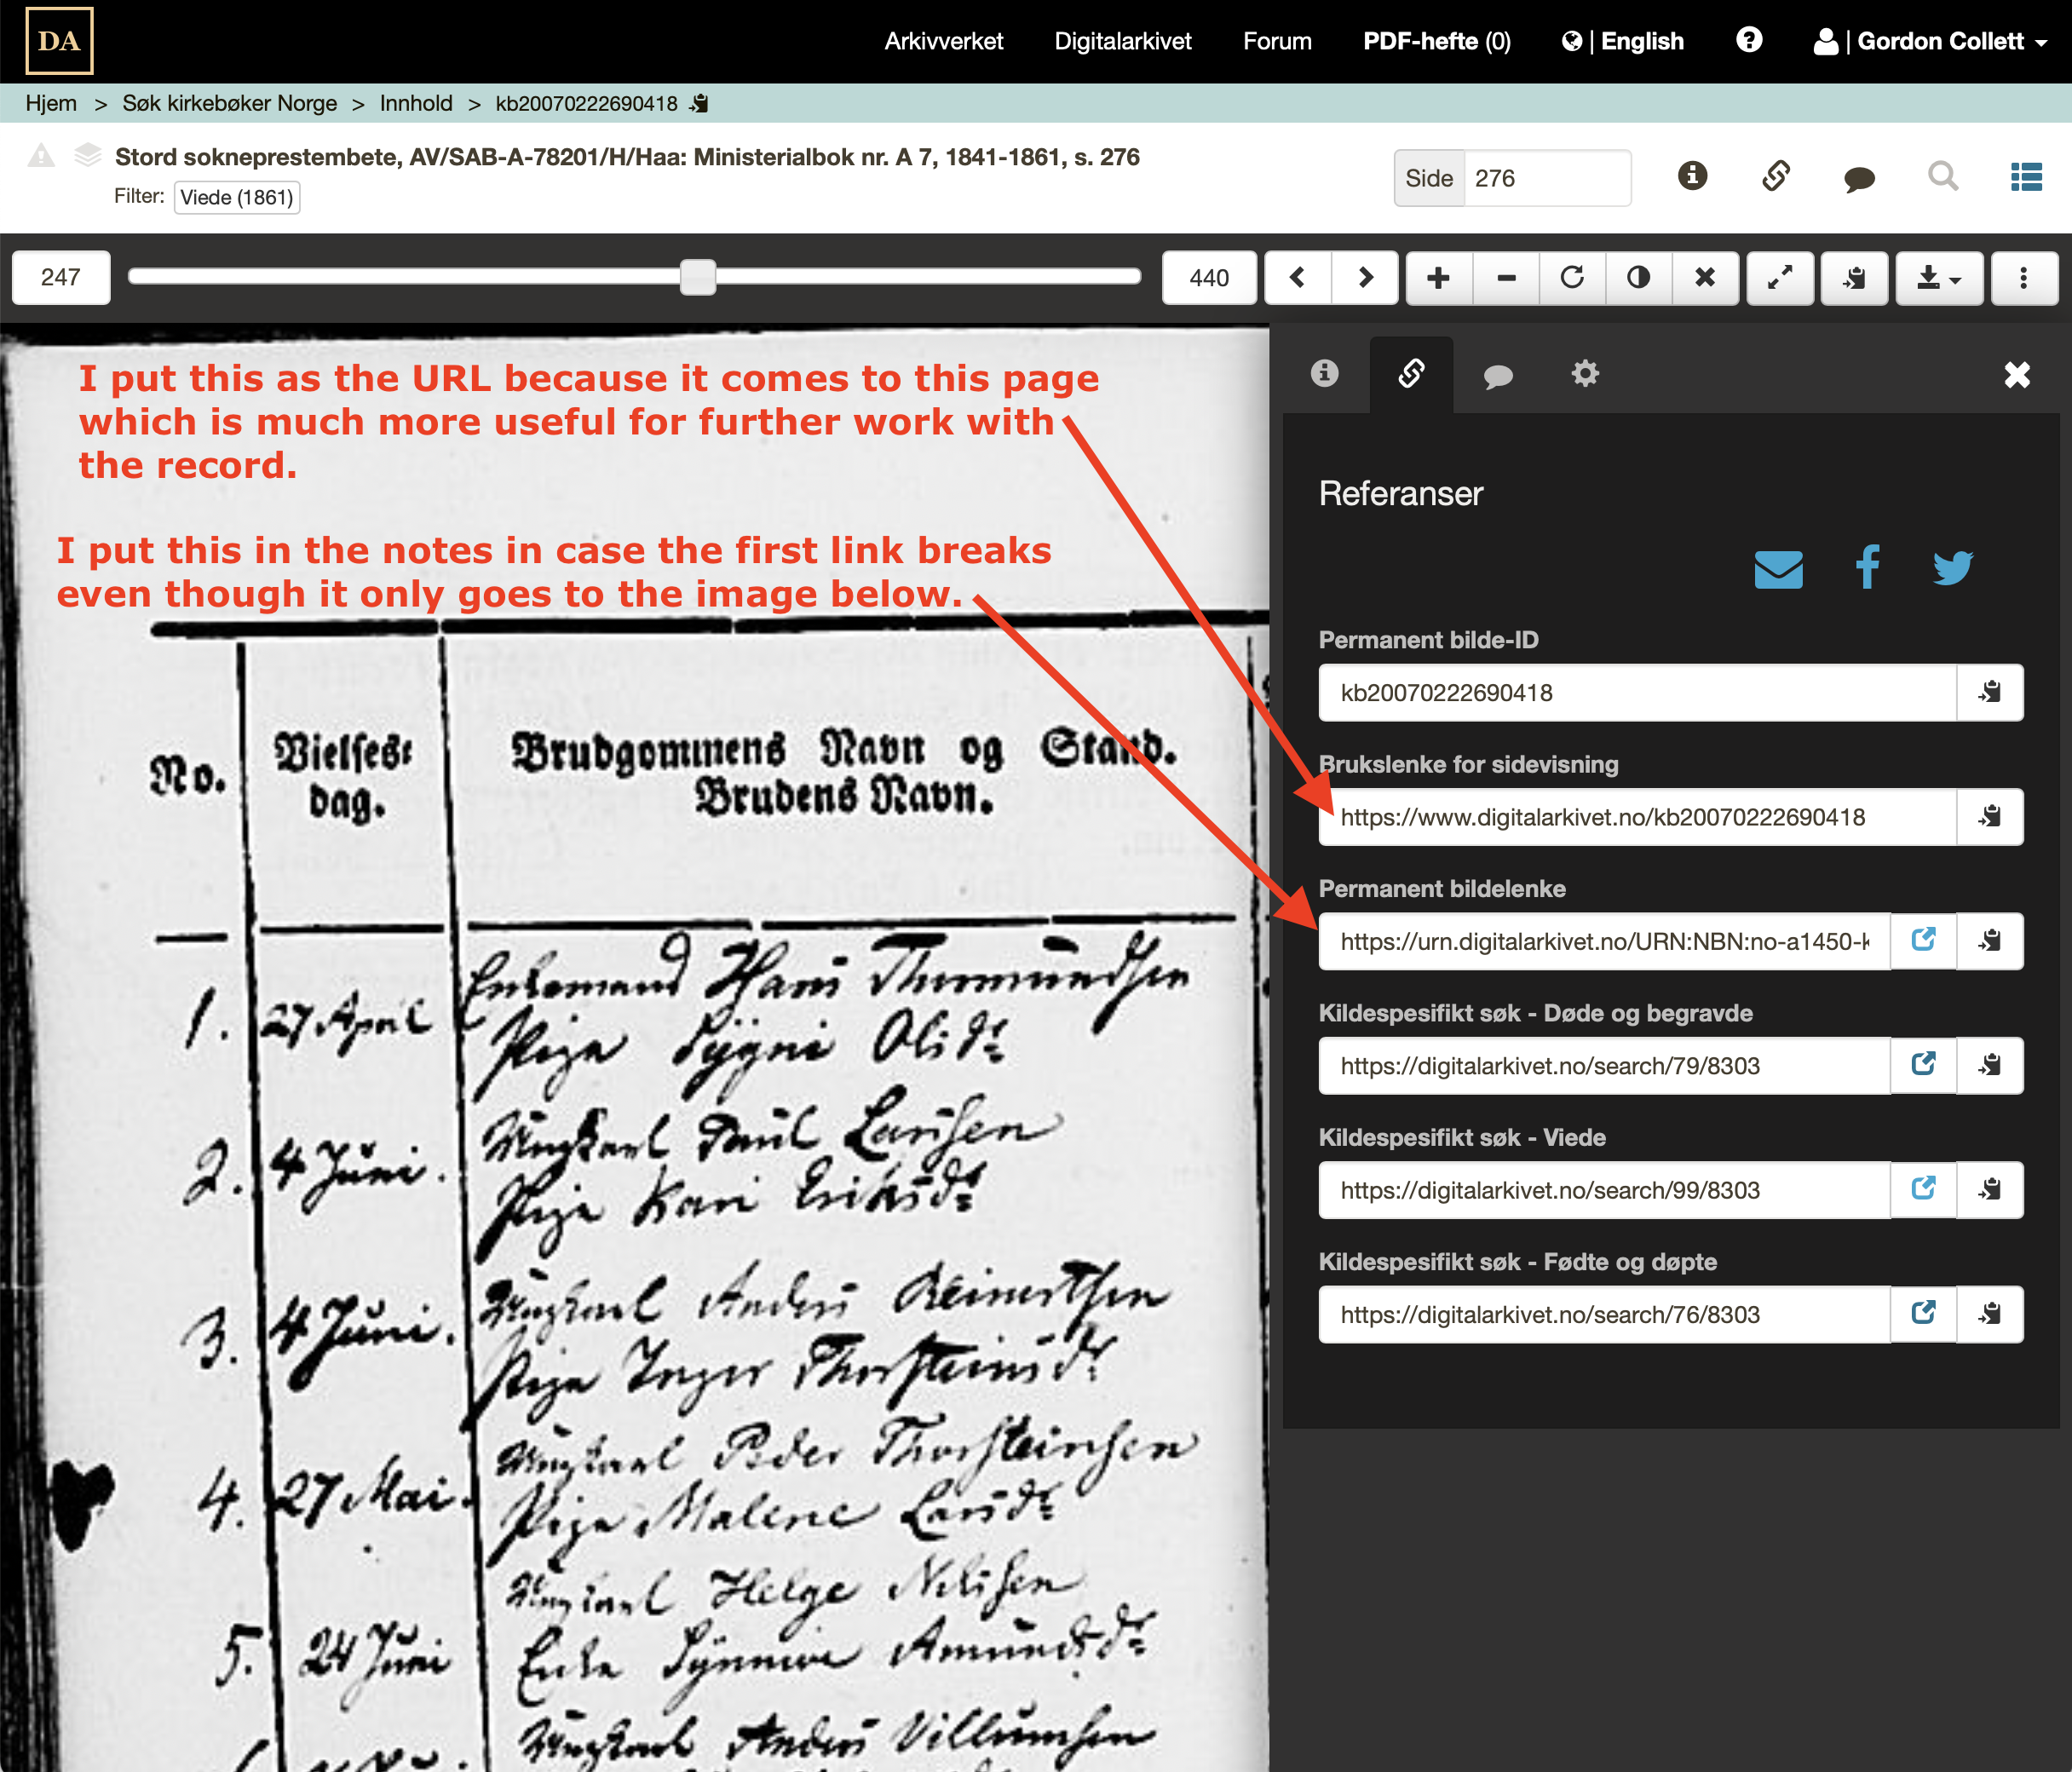 DA
Arkivverket Digitalarkivet Forum PDF-hefte (0) | English ? | Gordon Collett
Hjem > Søk kirkebøker Norge > Innhold > kb20070222690418
Stord sokneprestembete, AV/SAB-A-78201/H/Haa: Ministerialbok nr. A 7, 1841-1861, s. 276
Filter: Viede (1861)
Side 276
247
440
I put this as the URL because it comes to this page
which is much more useful for further work with
the record.
I put this in the notes in case the first link breaks
even though it only goes to the image below.
No.
Vielses-
dag.
Brudgommens Navn og Stand.
Brudens Navn.
1. 27 April Enkemand Hans
Pige Olsdr
2. 4 Juni. Ungkarl Paul Larssen
Pige Kari Eriksdr
3. 4 Juni. Ungkarl Anders
Pige Inger Thorsteinsdr
4. 27 Mai. Ungkarl Peder Thorsteinsen
Pige Malene Larsdr
5. 24 Juni Ungkarl Helge Nilssen
Enke Amundsdr
Ungkarl Anders Villumsen
Referanser
Permanent bilde-ID
kb20070222690418
Brukslenke for sidevisning
https://www.digitalarkivet.no/kb20070222690418
Permanent bildelenke
https://urn.digitalarkivet.no/URN:NBN:no-a1450-k
Kildespesifikt søk - Døde og begravde
https://digitalarkivet.no/search/79/8303
Kildespesifikt søk - Viede
https://digitalarkivet.no/search/99/8303
Kildespesifikt søk - Fødte og døpte
https://digitalarkivet.no/search/76/8303